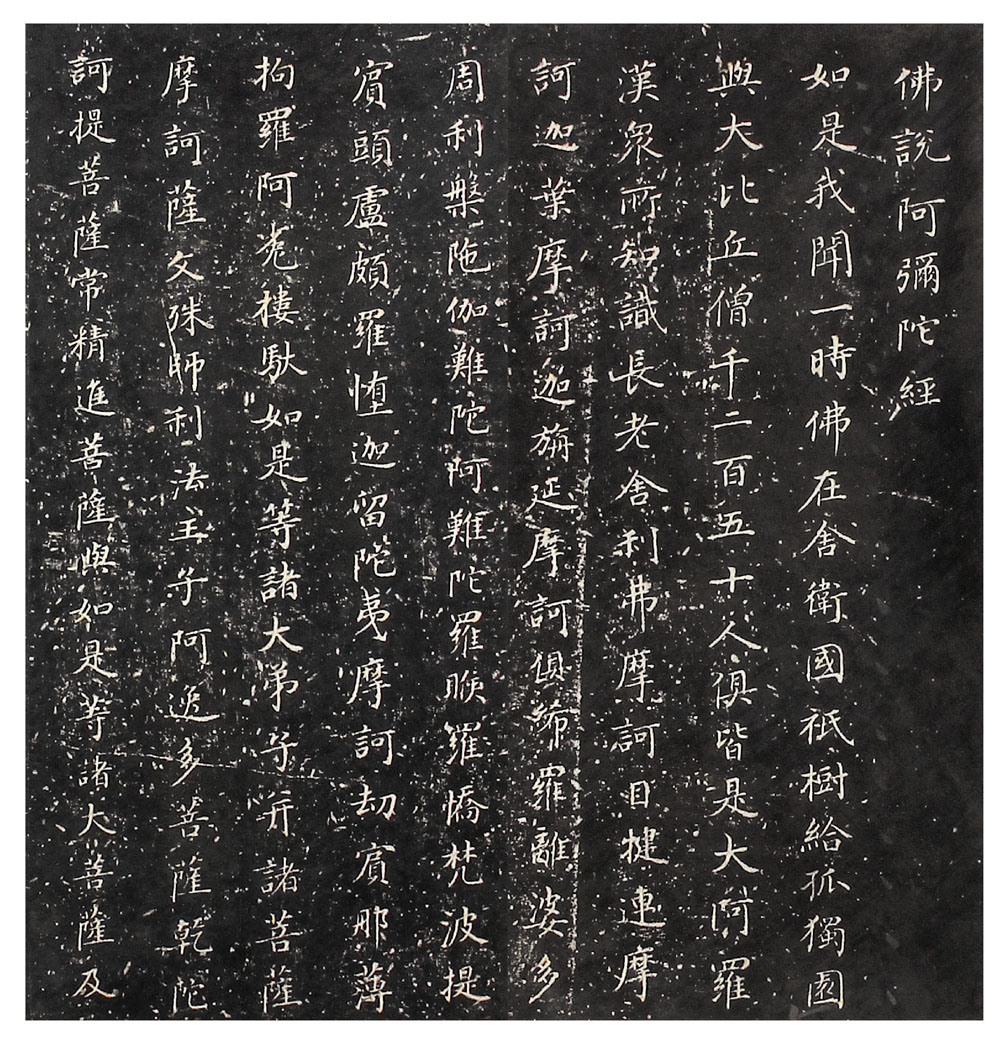 佛說阿彌陀經
如是我聞一時佛在舍衛國祇樹給孤獨園
與大比丘僧千二百五十人俱皆是大阿羅
漢眾所知識長老舍利弗摩訶目揵連摩
訶迦葉摩訶迦旃延摩訶俱絺羅離婆多
周利槃陁伽難陀阿難陀羅睺羅憍梵波提
賓頭盧頗羅墮迦留陀夷摩訶劫賓那薄
拘羅阿㝹樓馱如是等諸大弟子并諸菩薩
摩訶薩文殊師利法王子阿逸多菩薩乾陀
訶提菩薩常精進菩薩與如是等諸大菩薩及